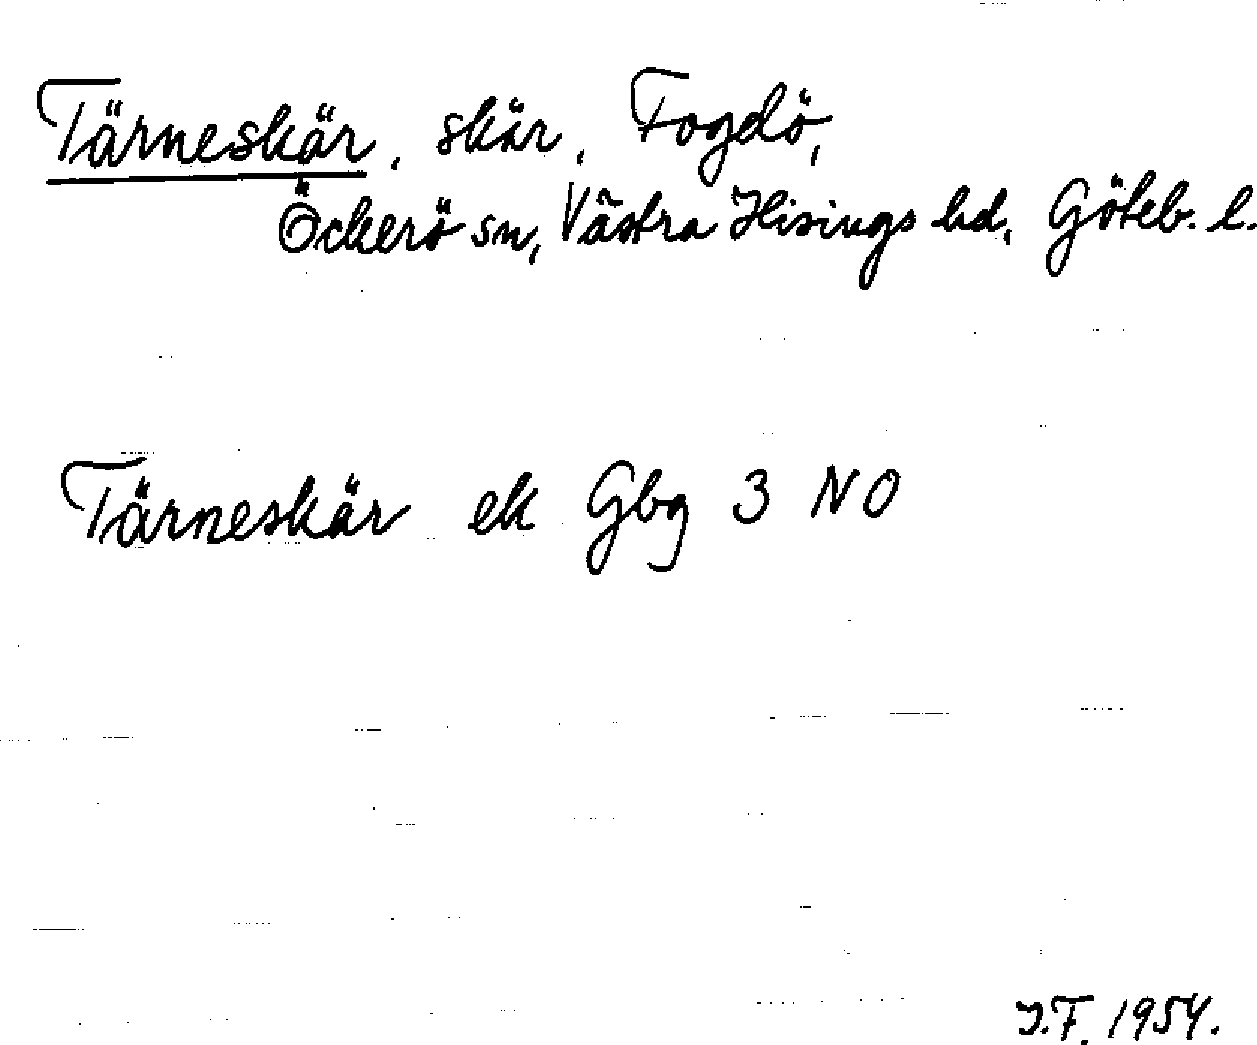 Tärneskär, skär, Fogdö,
Öckerö sn, Västra Hisings hd, Göteb. l.
Tärneskär ek Gbg 3 NO
J.F. 1954.